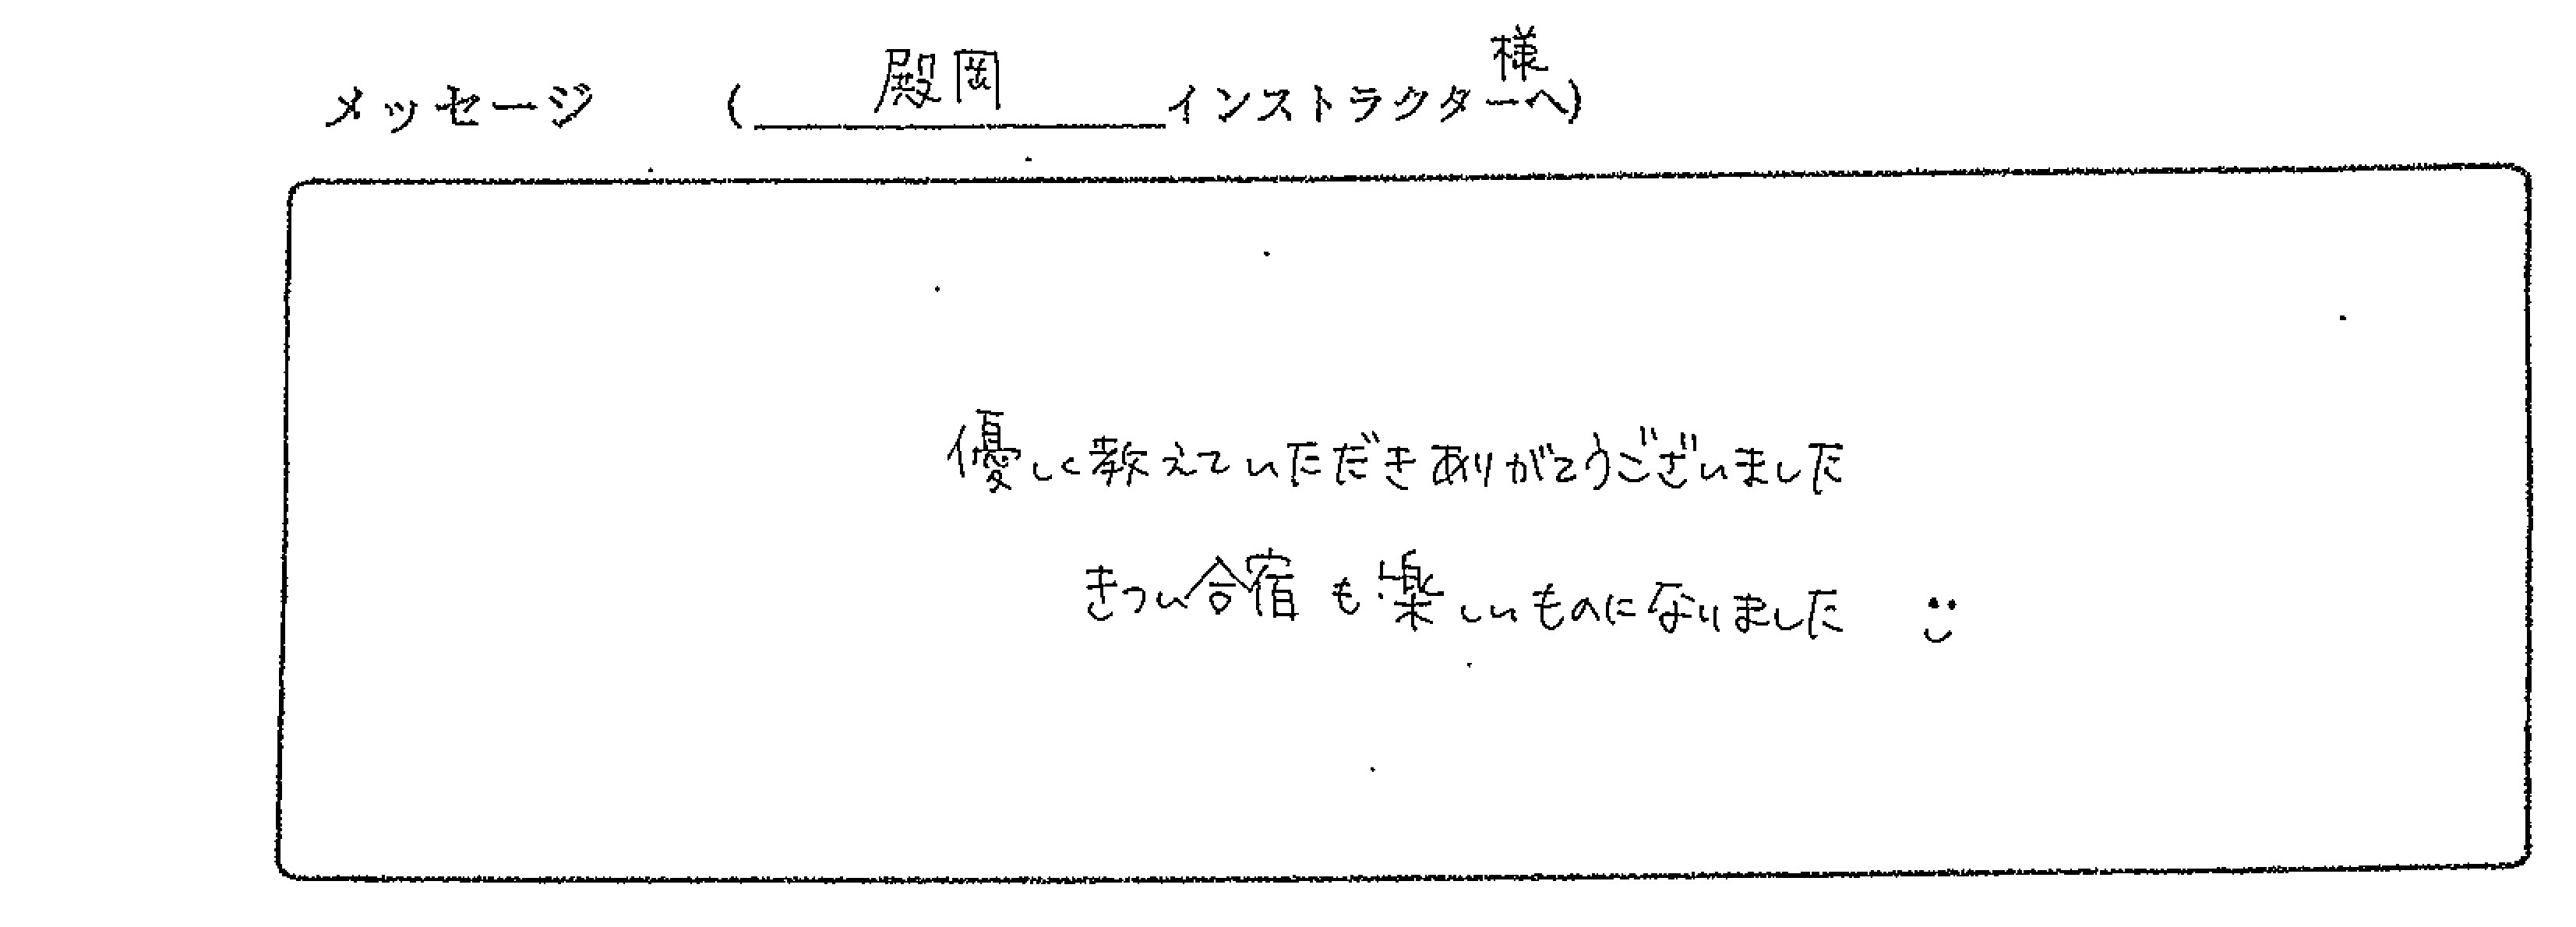 メッセージ （殿岡インストラクター様へ）
優しく教えていただきありがとうございました
きつい合宿も楽しいものになりました